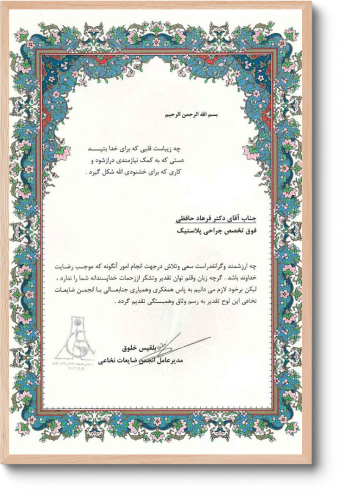 بسم الله الرحمن الرحیم
چه زیباست قلبی که برای خدا بتپـــد
دستی که به کمک نیازمندی درازشود و
کاری که برای خشنودی الله شکل گیرد .
جناب آقای دکتر فرهاد حافظی
فوق تخصص جراحی پلاستیک
چه ارزشمند وگرانقدراست سعی وتلاش درجهت انجام امور آنگونه که موجب رضایت
خداوند باشد . گرچه زبان وقلم توان تقدیر وتشکر اززحمات خداپسندانه شما را ندارد ،
لیکن برخود لازم می دانیم به پاس همفکری وهمیاری جنابعالی با انجمن ضایعات
نخاعی این لوح تقدیر به رسم وثاق وهمبستگی تقدیم گردد .
بلقیس خلوق
مدیرعامل انجمن ضایعات نخاعی